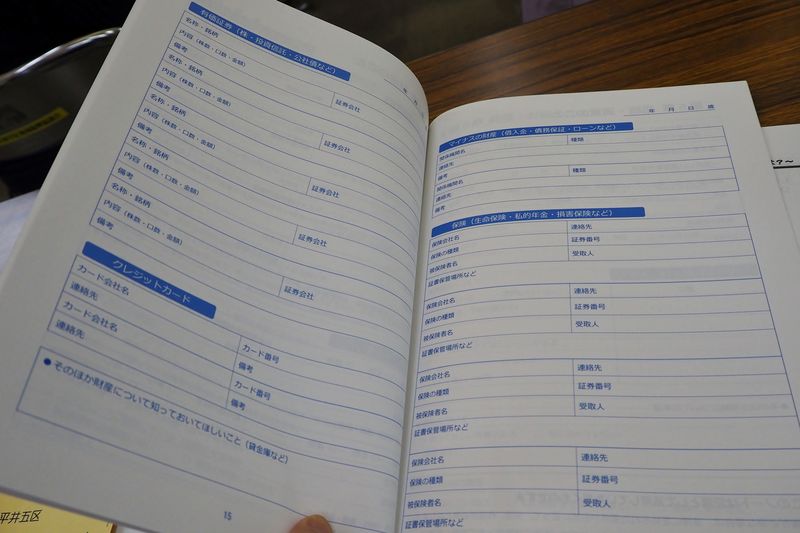 有価証券（株・投資信託・公社債など）
年　月
名称・銘柄　証券会社
内容（株数・口数・金額）
備考
名称・銘柄　証券会社
内容（株数・口数・金額）
備考
名称・銘柄　証券会社
内容（株数・口数・金額）
備考
名称・銘柄　証券会社
内容（株数・口数・金額）
備考
名称・銘柄　証券会社
内容（株数・口数・金額）
備考
クレジットカード
カード会社名　カード番号
連絡先　備考
カード会社名　カード番号
連絡先　備考
●そのほか財産について知っておいてほしいこと（貸金庫など）
15
平井五区
年　月　日　歳
マイナスの財産（借入金・債務保証・ローンなど）
関係機関名　種類
連絡先
備考
関係機関名　種類
連絡先
備考
保険（生命保険・私的年金・損害保険など）
保険会社名　連絡先
保険の種類　証券番号
被保険者名　受取人
証書保管場所など
保険会社名　連絡先
保険の種類　証券番号
被保険者名　受取人
証書保管場所など
保険会社名　連絡先
保険の種類　証券番号
被保険者名　受取人
証書保管場所など
保険会社名　連絡先
保険の種類　証券番号
被保険者名　受取人
証書保管場所など